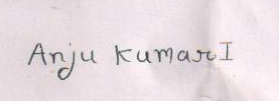 Anju KumarI